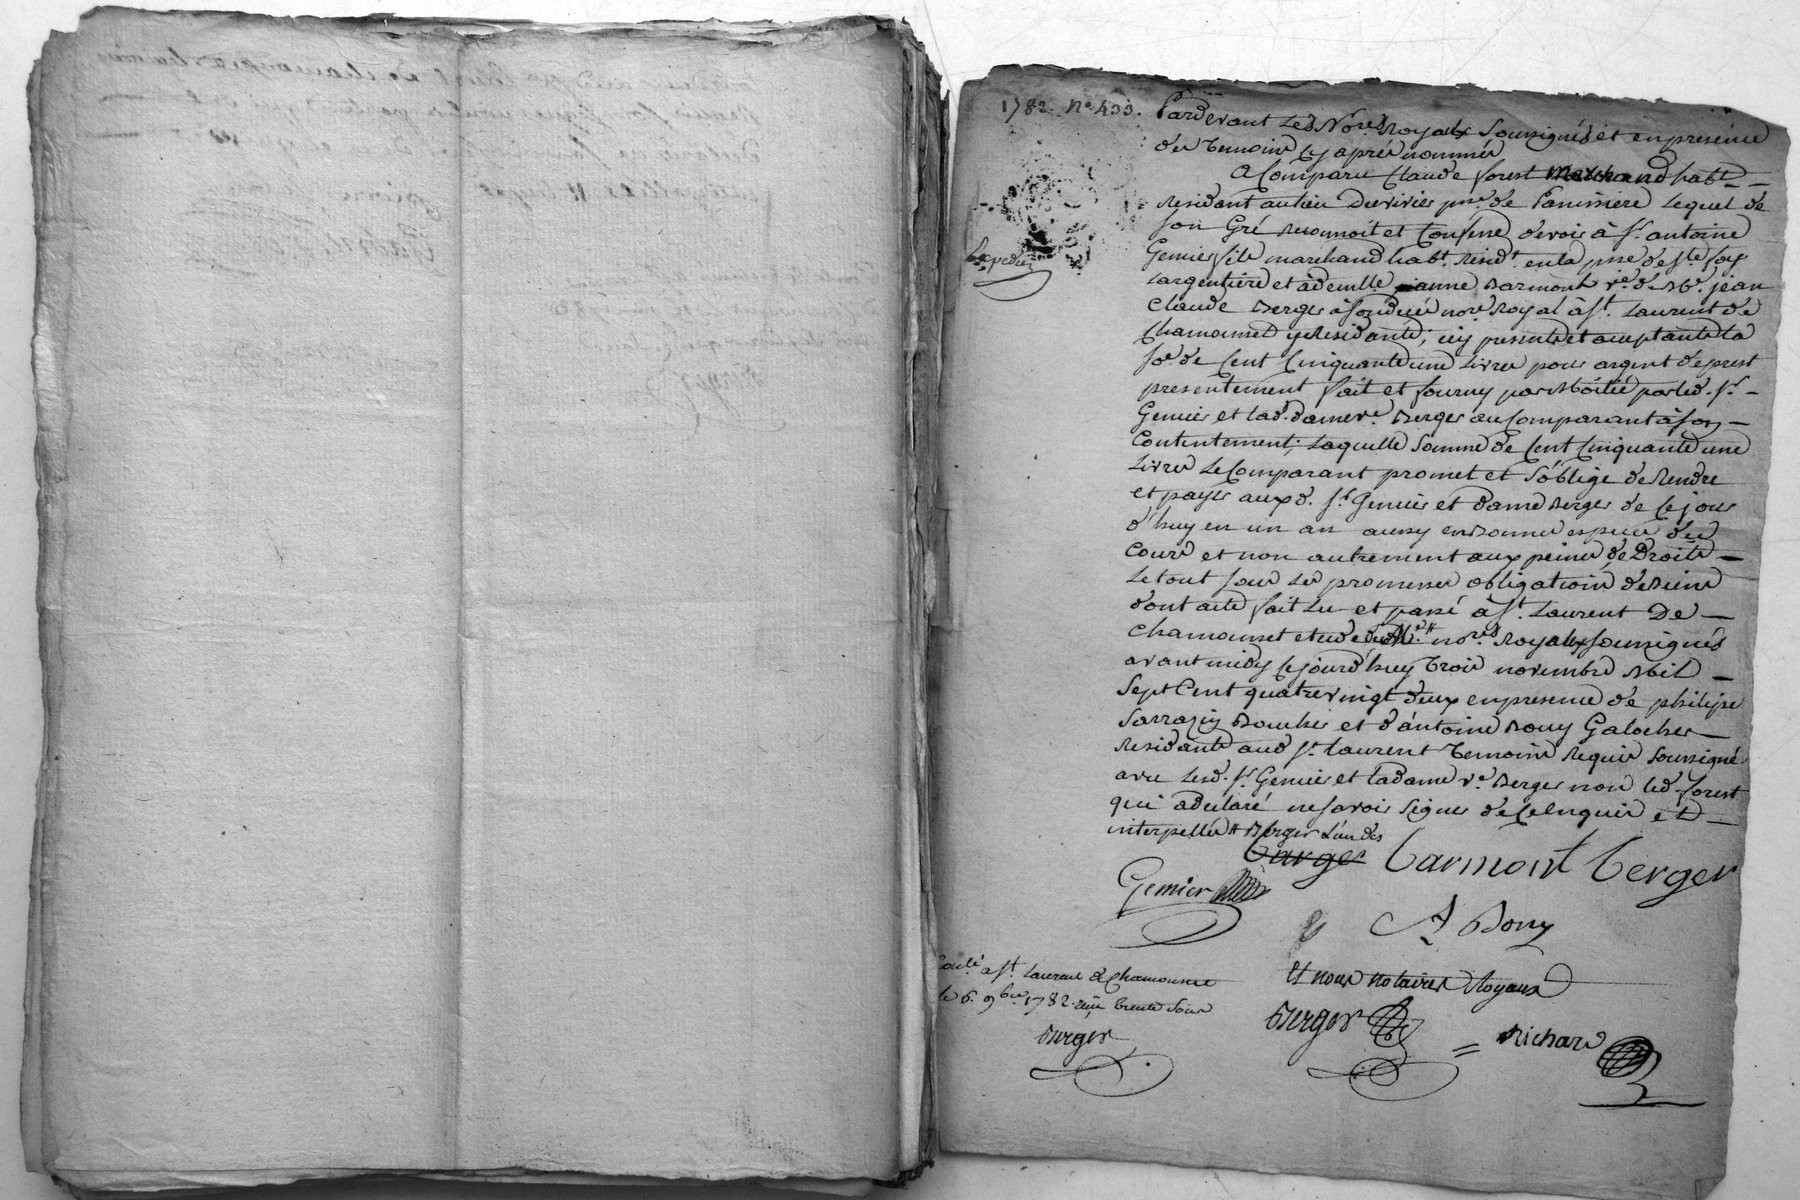 1782. No. 433.
Pardevant Les Nores Royaux Soussignés et en presence
des temoins cy après nommés
a Comparu Claude forest marchand habt
residant au lieu Duvivier psse de Panissiere Lequel de
son Gré reconnoit et Confesse devoir à sr. antoine
Gemier fils marchand habt. residt. en la psse de ste foy
Largentiere et à demlle jeanne Barmont ve. de Me. jean
Claude Berger à son deces nore Royal à st. Laurent de
Chamousset y residante, icy presents et acceptants la
so.e de Cent Cinquante une Livres pour argent de prest
presentement fait et fourny par Moitié par led. sr.
Gemier et lad. dame ve. Berger au Comparant à son
Contentement; Laquelle Somme de Cent Cinquante une
Livres Le Comparant promet et s'oblige de Rendre
et payer auxd. sr. Gemier et dame Berger de Ce jour
d'huy en un an aussy en bonnes especes de
Cours et non autrement aux peines de Droits
Le tout sous Les promesses obligations de biens
dont acte fait Lu et passé à st. Laurent De
Chamousset etude nores Royaux soussignés
avant midy Ce jourd'huy trois novembre Mil
Sept Cent quatrevingt deux en presence de philipe
Sarrazin Boucher et d'antoine Bony Galocher
residants aud st. Laurent temoins Requis soussignés
avec Lesd. sr. Gemier et Ladame ve. Berger non led. forest
qui a déclaré ne savoir signer de Ce Enquis et
interpellés # Berger L'un des
Barmont Berger
Gemier
A Bony
Expedié
Conlé. à st. Laurent de Chamousset
le 6. 9bre 1782. reçu trente sous
Berger
Et nous notaires Royaux
Berger
Richard